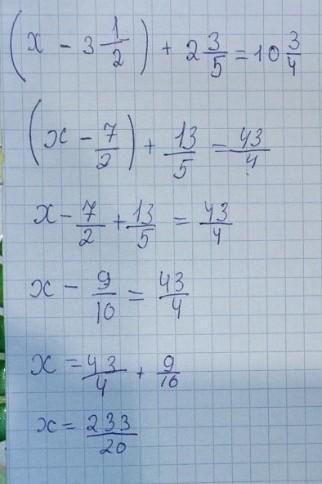 (x - 3 1/2) + 2 3/5 = 10 3/4
(x - 7/2) + 13/5 = 43/4
x - 7/2 + 13/5 = 43/4
x - 9/10 = 43/4
x = 43/4 + 9/10
x = 233/20